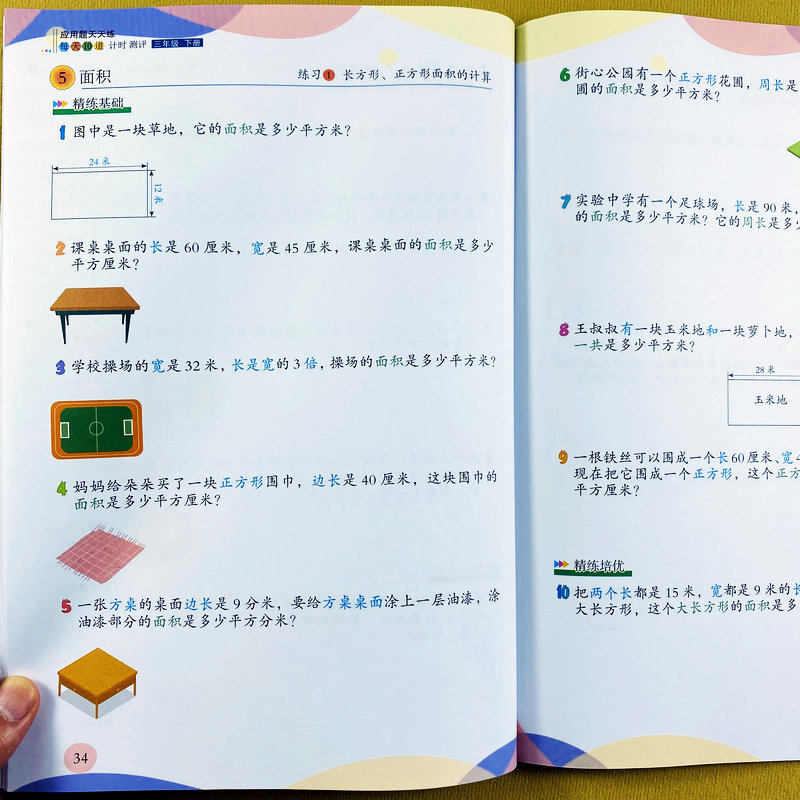 应用题天天练
每天10道 计时 测评 三年级 下册
5 面积 练习1 长方形、正方形面积的计算
精练基础
1 图中是一块草地，它的面积是多少平方米？
24 米
12 米
2 课桌桌面的长是 60 厘米，宽是 45 厘米，课桌桌面的面积是多少
平方厘米？
3 学校操场的宽是 32 米，长是宽的 3 倍，操场的面积是多少平方米？
4 妈妈给朵朵买了一块正方形围巾，边长是 40 厘米，这块围巾的
面积是多少平方厘米？
5 一张方桌的桌面边长是 9 分米，要给方桌桌面涂上一层油漆，涂
油漆部分的面积是多少平方分米？
34
6 街心公园有一个正方形花圃，周长是
圃的面积是多少平方米？
7 实验中学有一个足球场，长是 90 米，
的面积是多少平方米？它的周长是多
8 王叔叔有一块玉米地和一块萝卜地，
一共是多少平方米？
28 米
玉米地
9 一根铁丝可以围成一个长 60 厘米、宽
现在把它围成一个正方形，这个正方
平方厘米？
精练培优
10 把两个长都是 15 米，宽都是 9 米的
大长方形，这个大长方形的面积是多